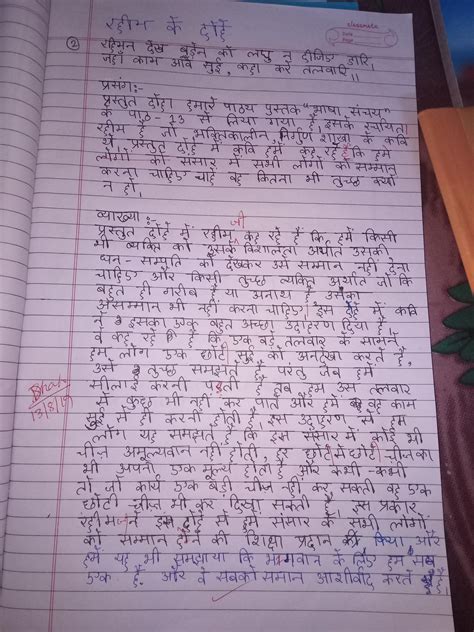 रहीम के दोहे
classmate
Date
Page
② रहिमन देख बड़ेन को लघु न दीजिए डारि,
जहाँ काम आवे सुई, कहा करे तलवारि ।।
प्रसंग:-
प्रस्तुत दोहा हमारे पाठ्य पुस्तक "भाषा संचय"
के पाठ - 13 से लिया गया है, इसके रचयिता
रहीम है जो भक्तिकालीन निर्गुण शाखा के कवि
थे। प्रस्तुत दोहे में कवि हमें कह रहे है कि हमें
लोगों को संसार में सभी लोगों को सम्मान
करना चाहिए चाहे वह कितना भी तुच्छ क्यों
न हो।
व्याख्या:-
प्रस्तुत दोहे में रहीम जी कह रहे है कि हमें किसी
भी व्यक्ति को उसके विशालता अर्थात उसकी
धन - सम्पति को देखकर उसे सम्मान नहीं देना
चाहिए और किसी तुच्छ व्यक्ति अर्थात जो कि
बहुत ही गरीब है या अनाथ है उसका
असम्मान भी नहीं करना चाहिए। इस दोहे में कवि
ने इसका एक बहुत अच्छा उदाहरण दिया है
वे कह रहे है कि एक बड़े तलवार के सामने
हम लोग एक छोटी सुई को अनदेखा करते हैं,
उसे तुच्छ समझते है परंतु जब हमें
सीलाई करनी पड़ती है तब हम उस तलवार
से कुछ भी नहीं कर पाते और हमें वह काम
सुई से ही करनी होती है। इस उदहरण से हम
लोग यह समझते है कि इस संसार में कोई भी
चीज अमूल्यवान नहीं होती, हर छोटी से छोटी चीज का
भी अपनी एक मूल्य होता है और कभी - कभी
तो जो कार्य एक बड़ी चीज नहीं कर सकती वह एक
छोटी चीज भी कर दिखा सकती है। इस प्रकार
रहीम ने इस दोहे से हमें संसार के सभी लोगों
को सम्मान देने की शिक्षा प्रदान की किया और
हमें यह भी समझाया कि भगवान के लिए हम सब
एक है और वे सबको समान आशीर्वाद करते है
13/8/19